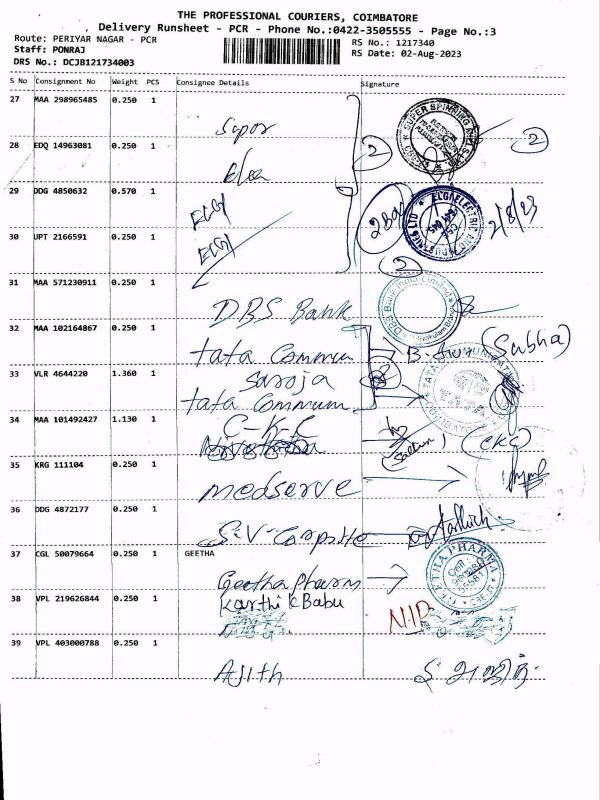 THE PROFESSIONAL COURIERS, COIMBATORE
Delivery Runsheet - PCR - Phone No.:0422-3505555 - Page No.:3
Route: PERIYAR NAGAR - PCR
RS No.: 1217340
Staff: PONRAJ
RS Date: 02-Aug-2023
DRS No.: DCJB121734003
S No Consignment No Weight PCS Consignee Details Signature
27 MAA 298965485 0.250 1
Super
28 EDQ 14963081 0.250 1
2 2
29 DDG 4850632 0.570 1
ELGI
2 Box 2/8/23
30 UPT 2166591 0.250 1
ELGI
2
31 MAA 571230911 0.250 1
DBS Bank
32 MAA 102164867 0.250 1
tata Commun (Subha)
33 VLR 4644220 1.360 1
Saroja
tata Commum
34 MAA 101492427 1.130 1
C-K-C
(CKC)
35 KRG 111104 0.250 1
medserve
36 DDG 4872177 0.250 1
S.V-Carpsite
37 CGL 50079664 0.250 1 GEETHA
Geetha pharm
38 VPL 219626844 0.250 1 Karthik Babu
N.I.P
39 VPL 403000788 0.250 1
Ajith